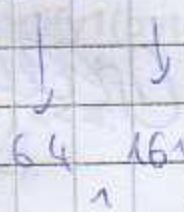 ↓ ↓
64 161
1